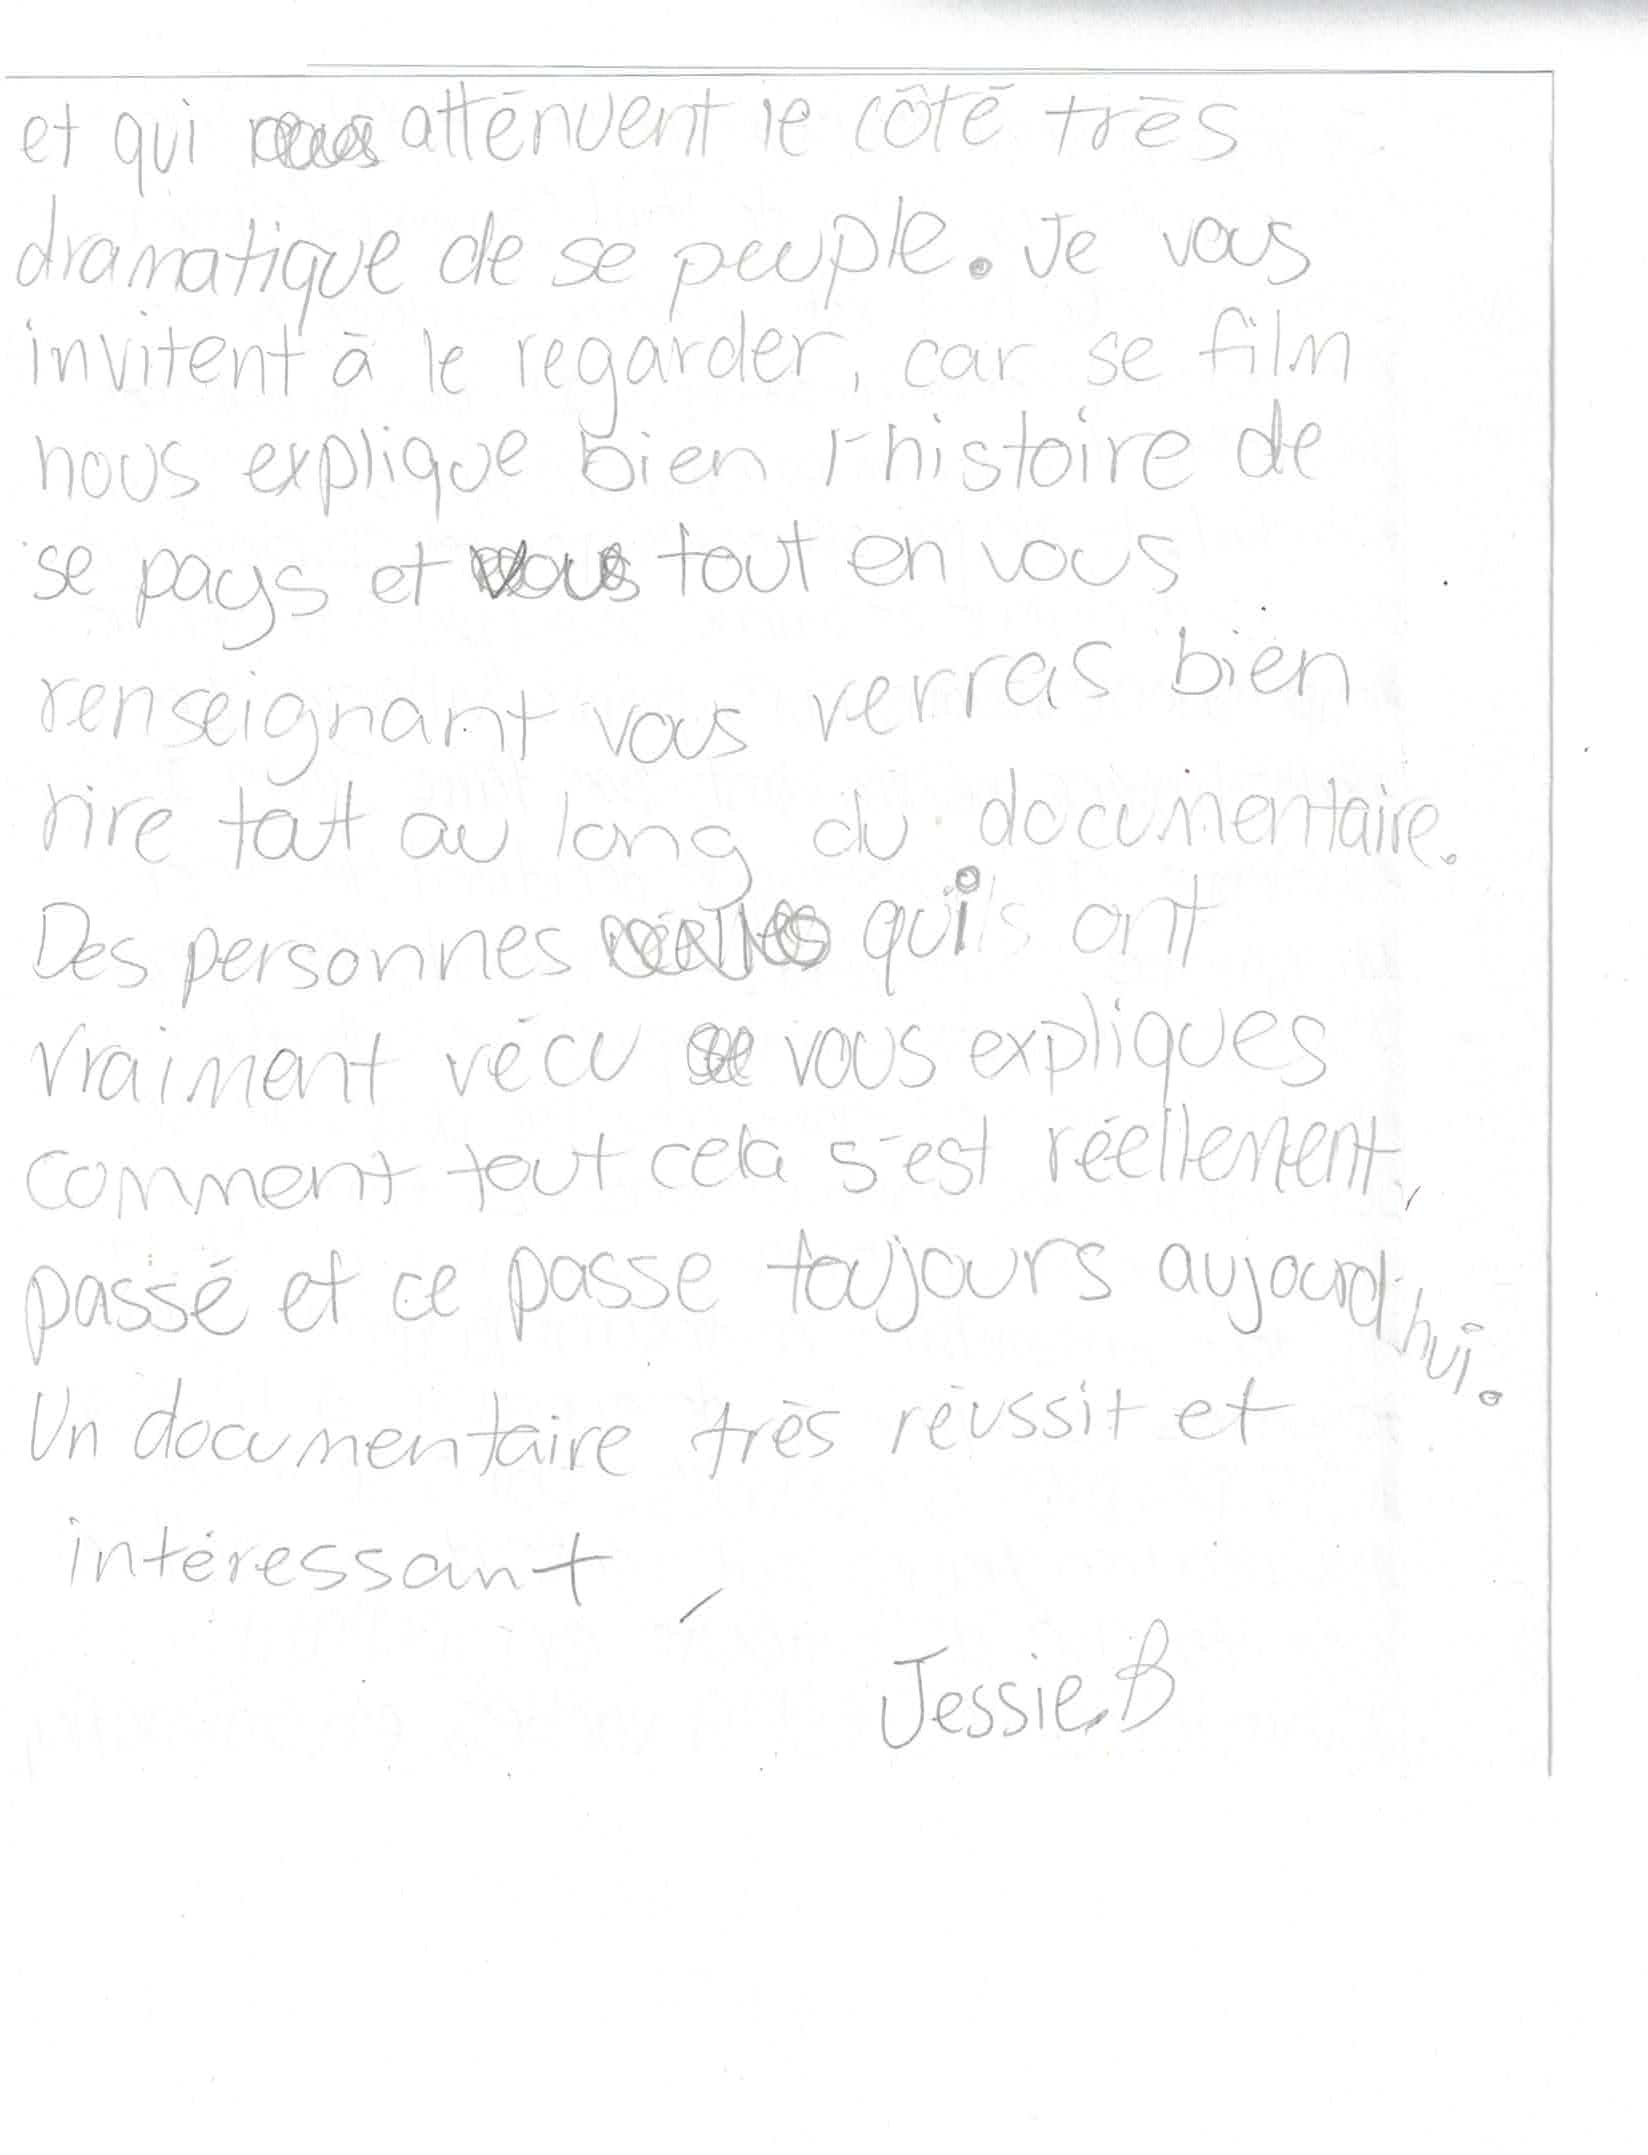 et qui atténuent le côté très
dramatique de se peuple. Je vous
invitent à le regarder, car se film
nous explique bien l'histoire de
se pays et vous tout en vous
renseignant vous verras bien
rire tout au long du documentaire.
Des personnes réelles qu'ils ont
vraiment vécu se vous expliques
comment tout cela s'est réellement,
passé et ce passe toujours aujourd'hui.
Un documentaire très réussit et
intéressant,
Jessie.B